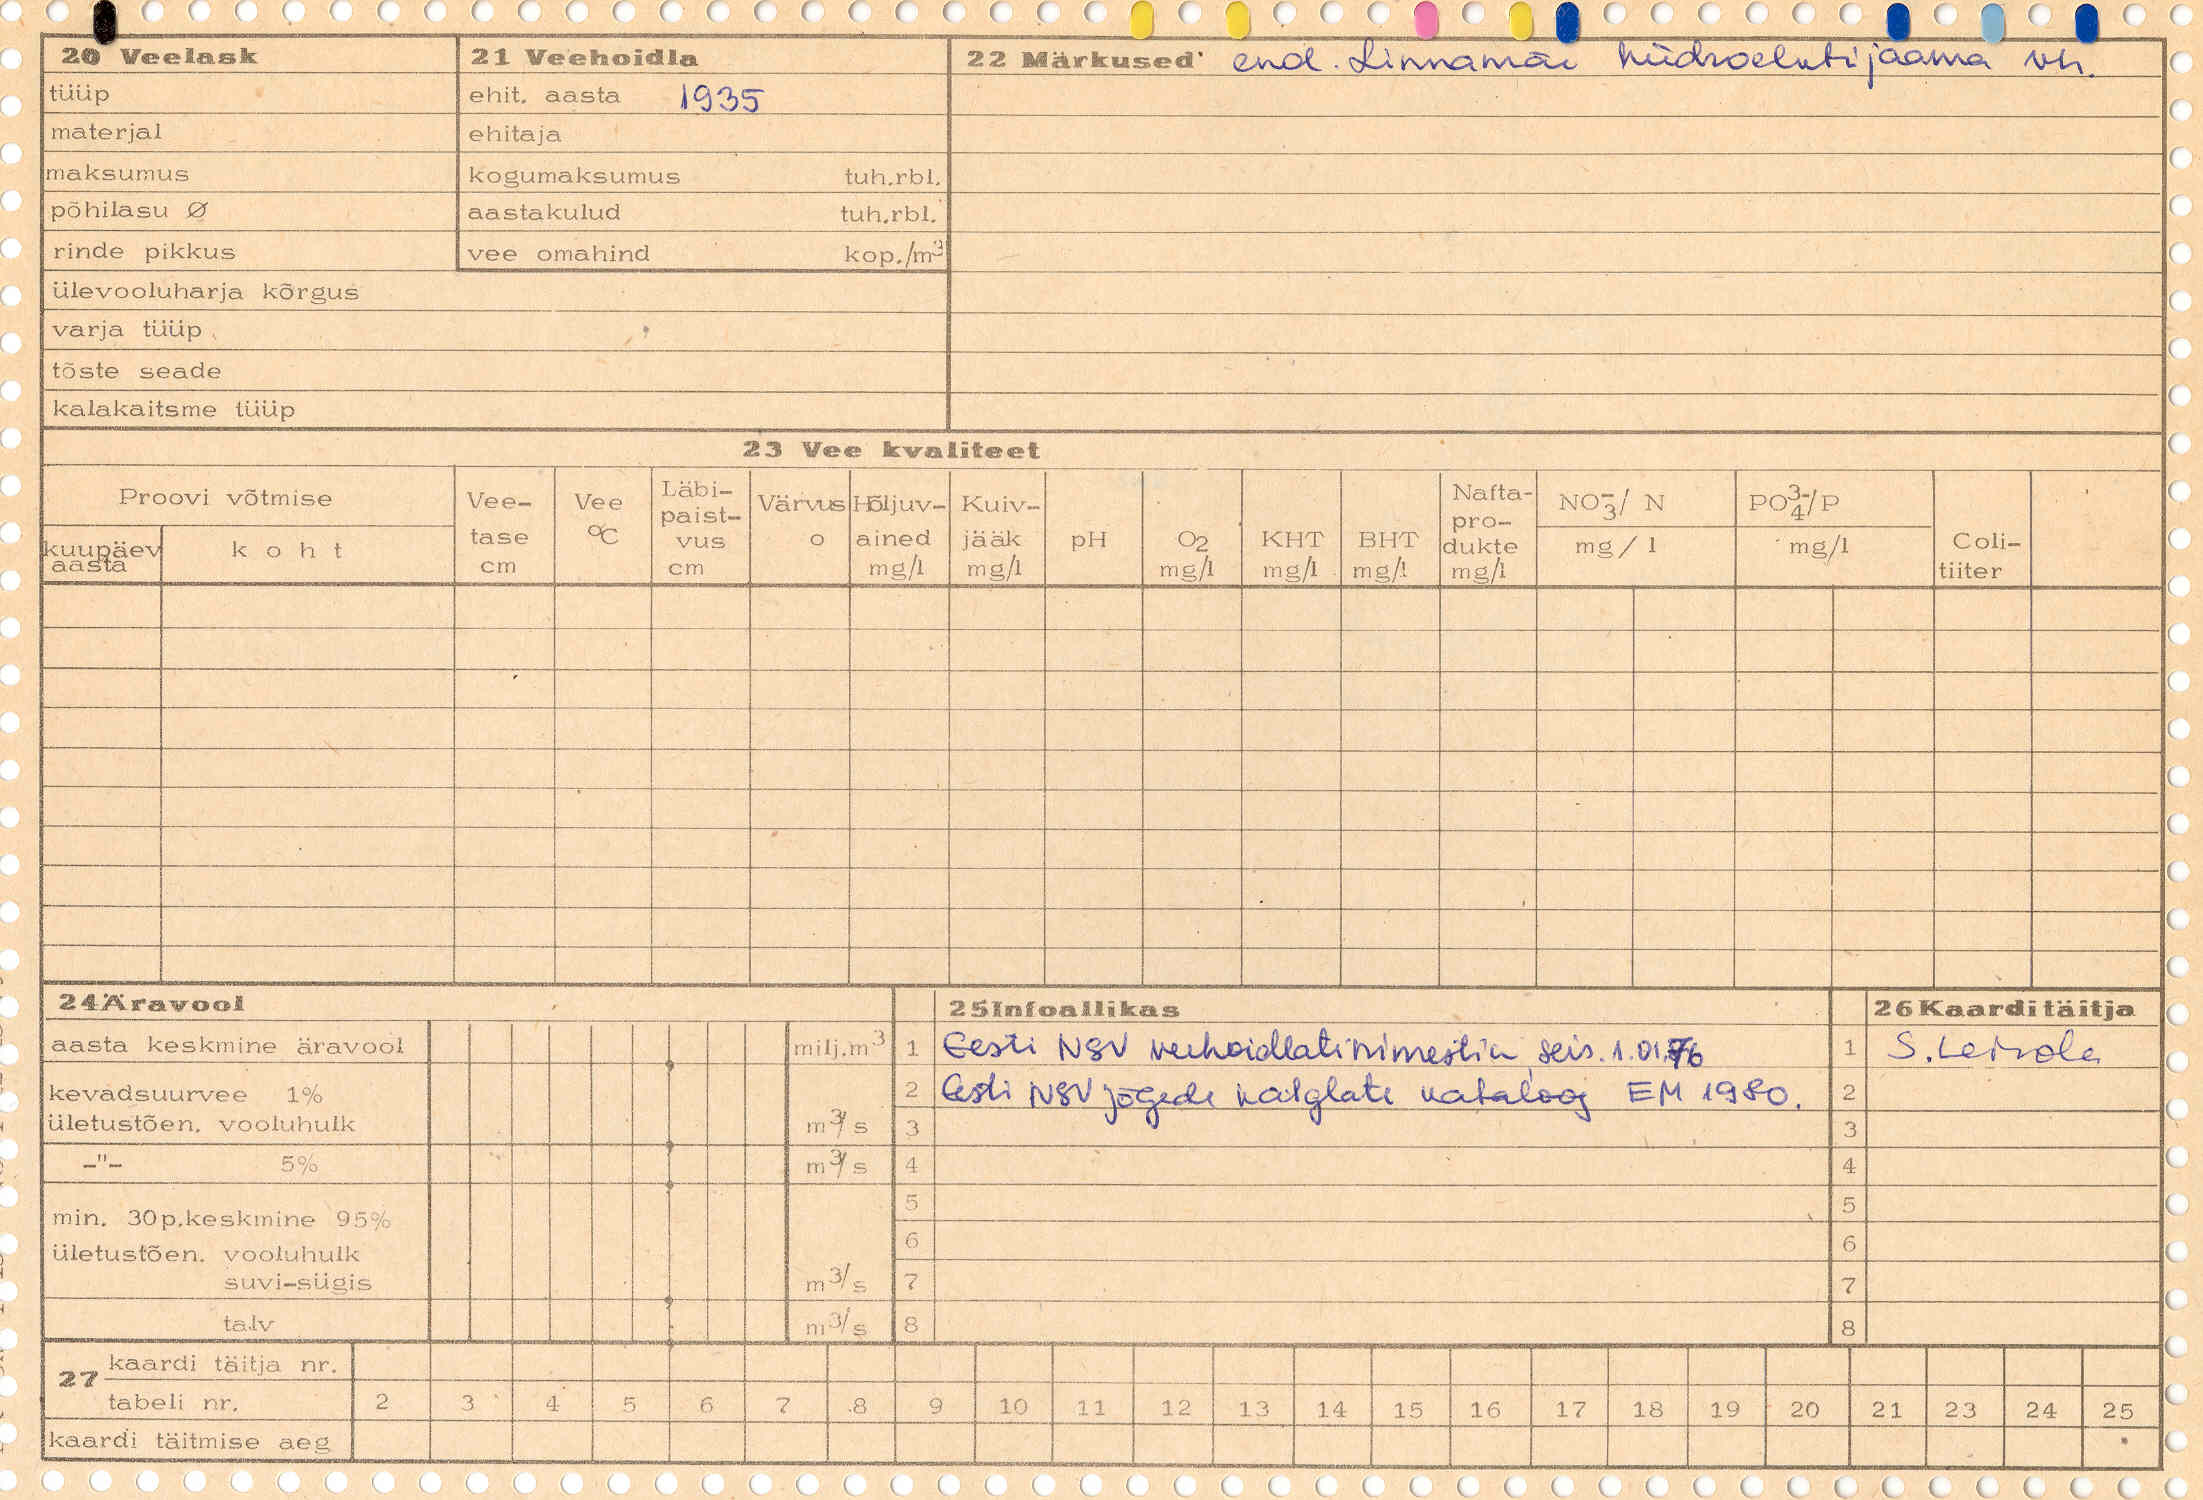 20 Veelask
tüüp
materjal
maksumus
põhilasu Ø
rinde pikkus
ülevooluharja kõrgus
varja tüüp
tõste seade
kalakaitsme tüüp
21 Veehoidla
ehit. aasta 1935
ehitaja
kogumaksumus tuh.rbl.
aastakulud tuh.rbl.
vee omahind kop./m³
22 Märkused endl. Linnamäe hüdroelektrijaama vh.
23 Vee kvaliteet
Proovi võtmise
kuupäev
aasta
koht
Vee-
tase
cm
Vee
°C
Läbi-
paist-
vus
cm
Värvus
o
Hõljuv-
ained
mg/l
Kuiv-
jääk
mg/l
pH
O2
mg/l
KHT
mg/l
BHT
mg/l
Nafta-
pro-
dukte
mg/l
NO₃⁻/ N
mg/l
PO₄³⁻/P
mg/l
Coli-
tiiter
24 Äravool
aasta keskmine äravool milj.m³
kevadsuurvee 1%
ületustõen. vooluhulk m³/s
-"- 5% m³/s
min. 30p.keskmine 95%
ületustõen. vooluhulk
suvi-sügis m³/s
talv m³/s
25 Infoallikas
1 Eesti NSV veehoidlate nimestik, seis. 1.01.76
2 Eesti NSV jõgede valglate kataloog EM 1980.
3
4
5
6
7
8
26 Kaarditäitja
1 S. Leisola
2
3
4
5
6
7
8
27 kaardi täitja nr.
tabeli nr. 2 3 4 5 6 7 8 9 10 11 12 13 14 15 16 17 18 19 20 21 23 24 25
kaardi täitmise aeg